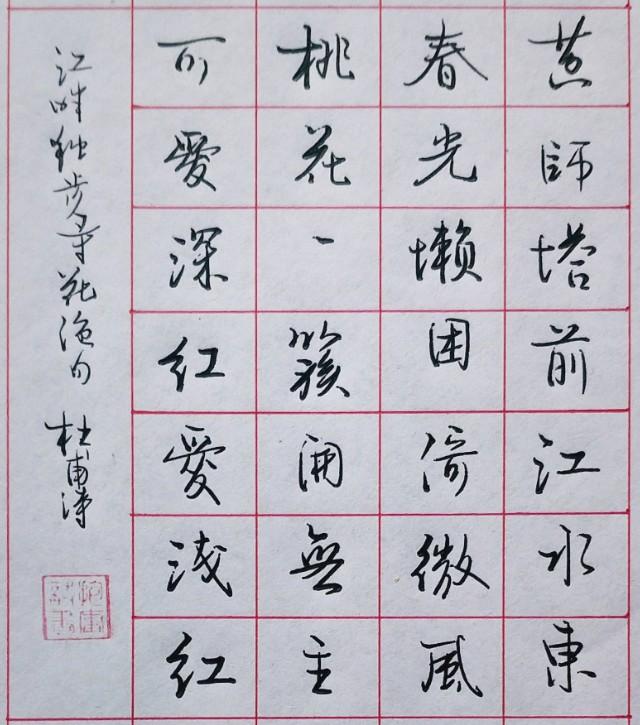 黄師塔前江水東
春光懒困倚微風
桃花一簇開無主
可愛深紅愛淺紅
江畔独步寻花绝句 杜甫诗